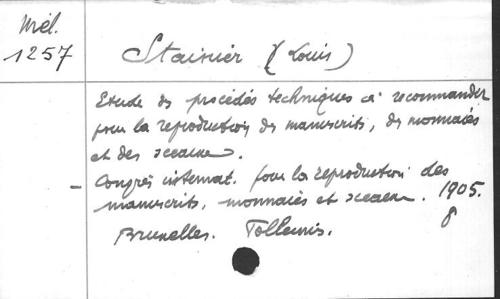 Mél.
1257
Stainier (Louis)
Etude des procédés techniques à recommander
pour la reproduction des manuscrits, des monnaies
et des sceaux.
- Congrès internat. pour la reproduction des
manuscrits, monnaies et sceaux. 1905.
Bruxelles. 8